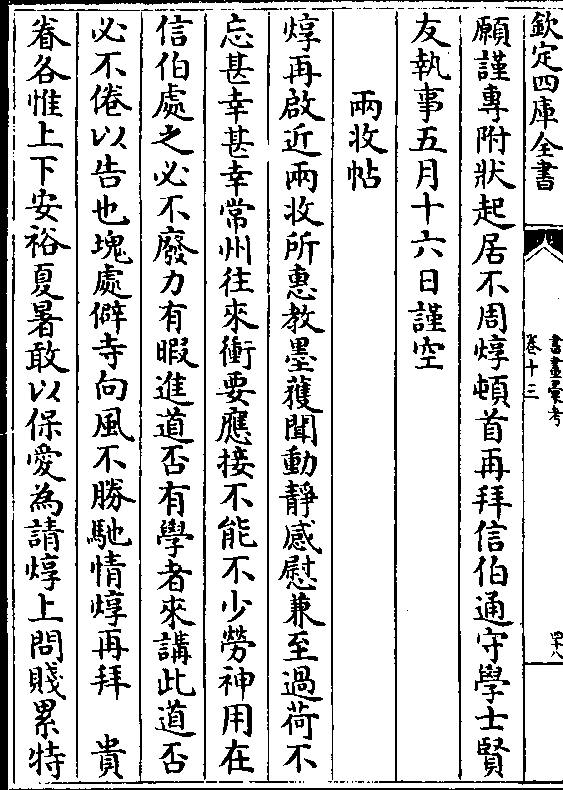 欽定四庫全書
書畫彙考
卷十三
四十八
願謹專附狀起居不周焞頓首再拜信伯通守學士賢
友執事五月十六日謹空
兩收帖
焞再啟近兩收所惠教墨蒦聞動靜感慰兼至過荷不
忘甚幸甚幸常州往來衝要應接不能不少勞神用在
信伯處之必不廢力有暇進道否有學者來講此道否
必不倦以告也塊處僻寺向風不勝馳情焞再拜 貴
眷各惟上下安裕夏暑敢以保愛為請焞上問賤累特